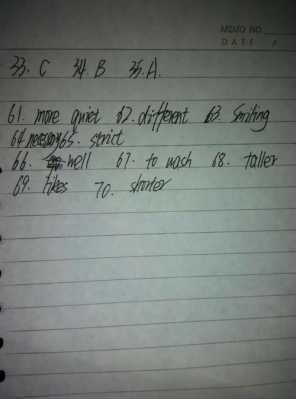 MEMO NO.
DATE /
33. C 34. B 35. A.
61. more quiet 62. different 63. Smiling
64. necessary 65. strict
66. well 67. to wash 68. taller
69. likes 70. shorter